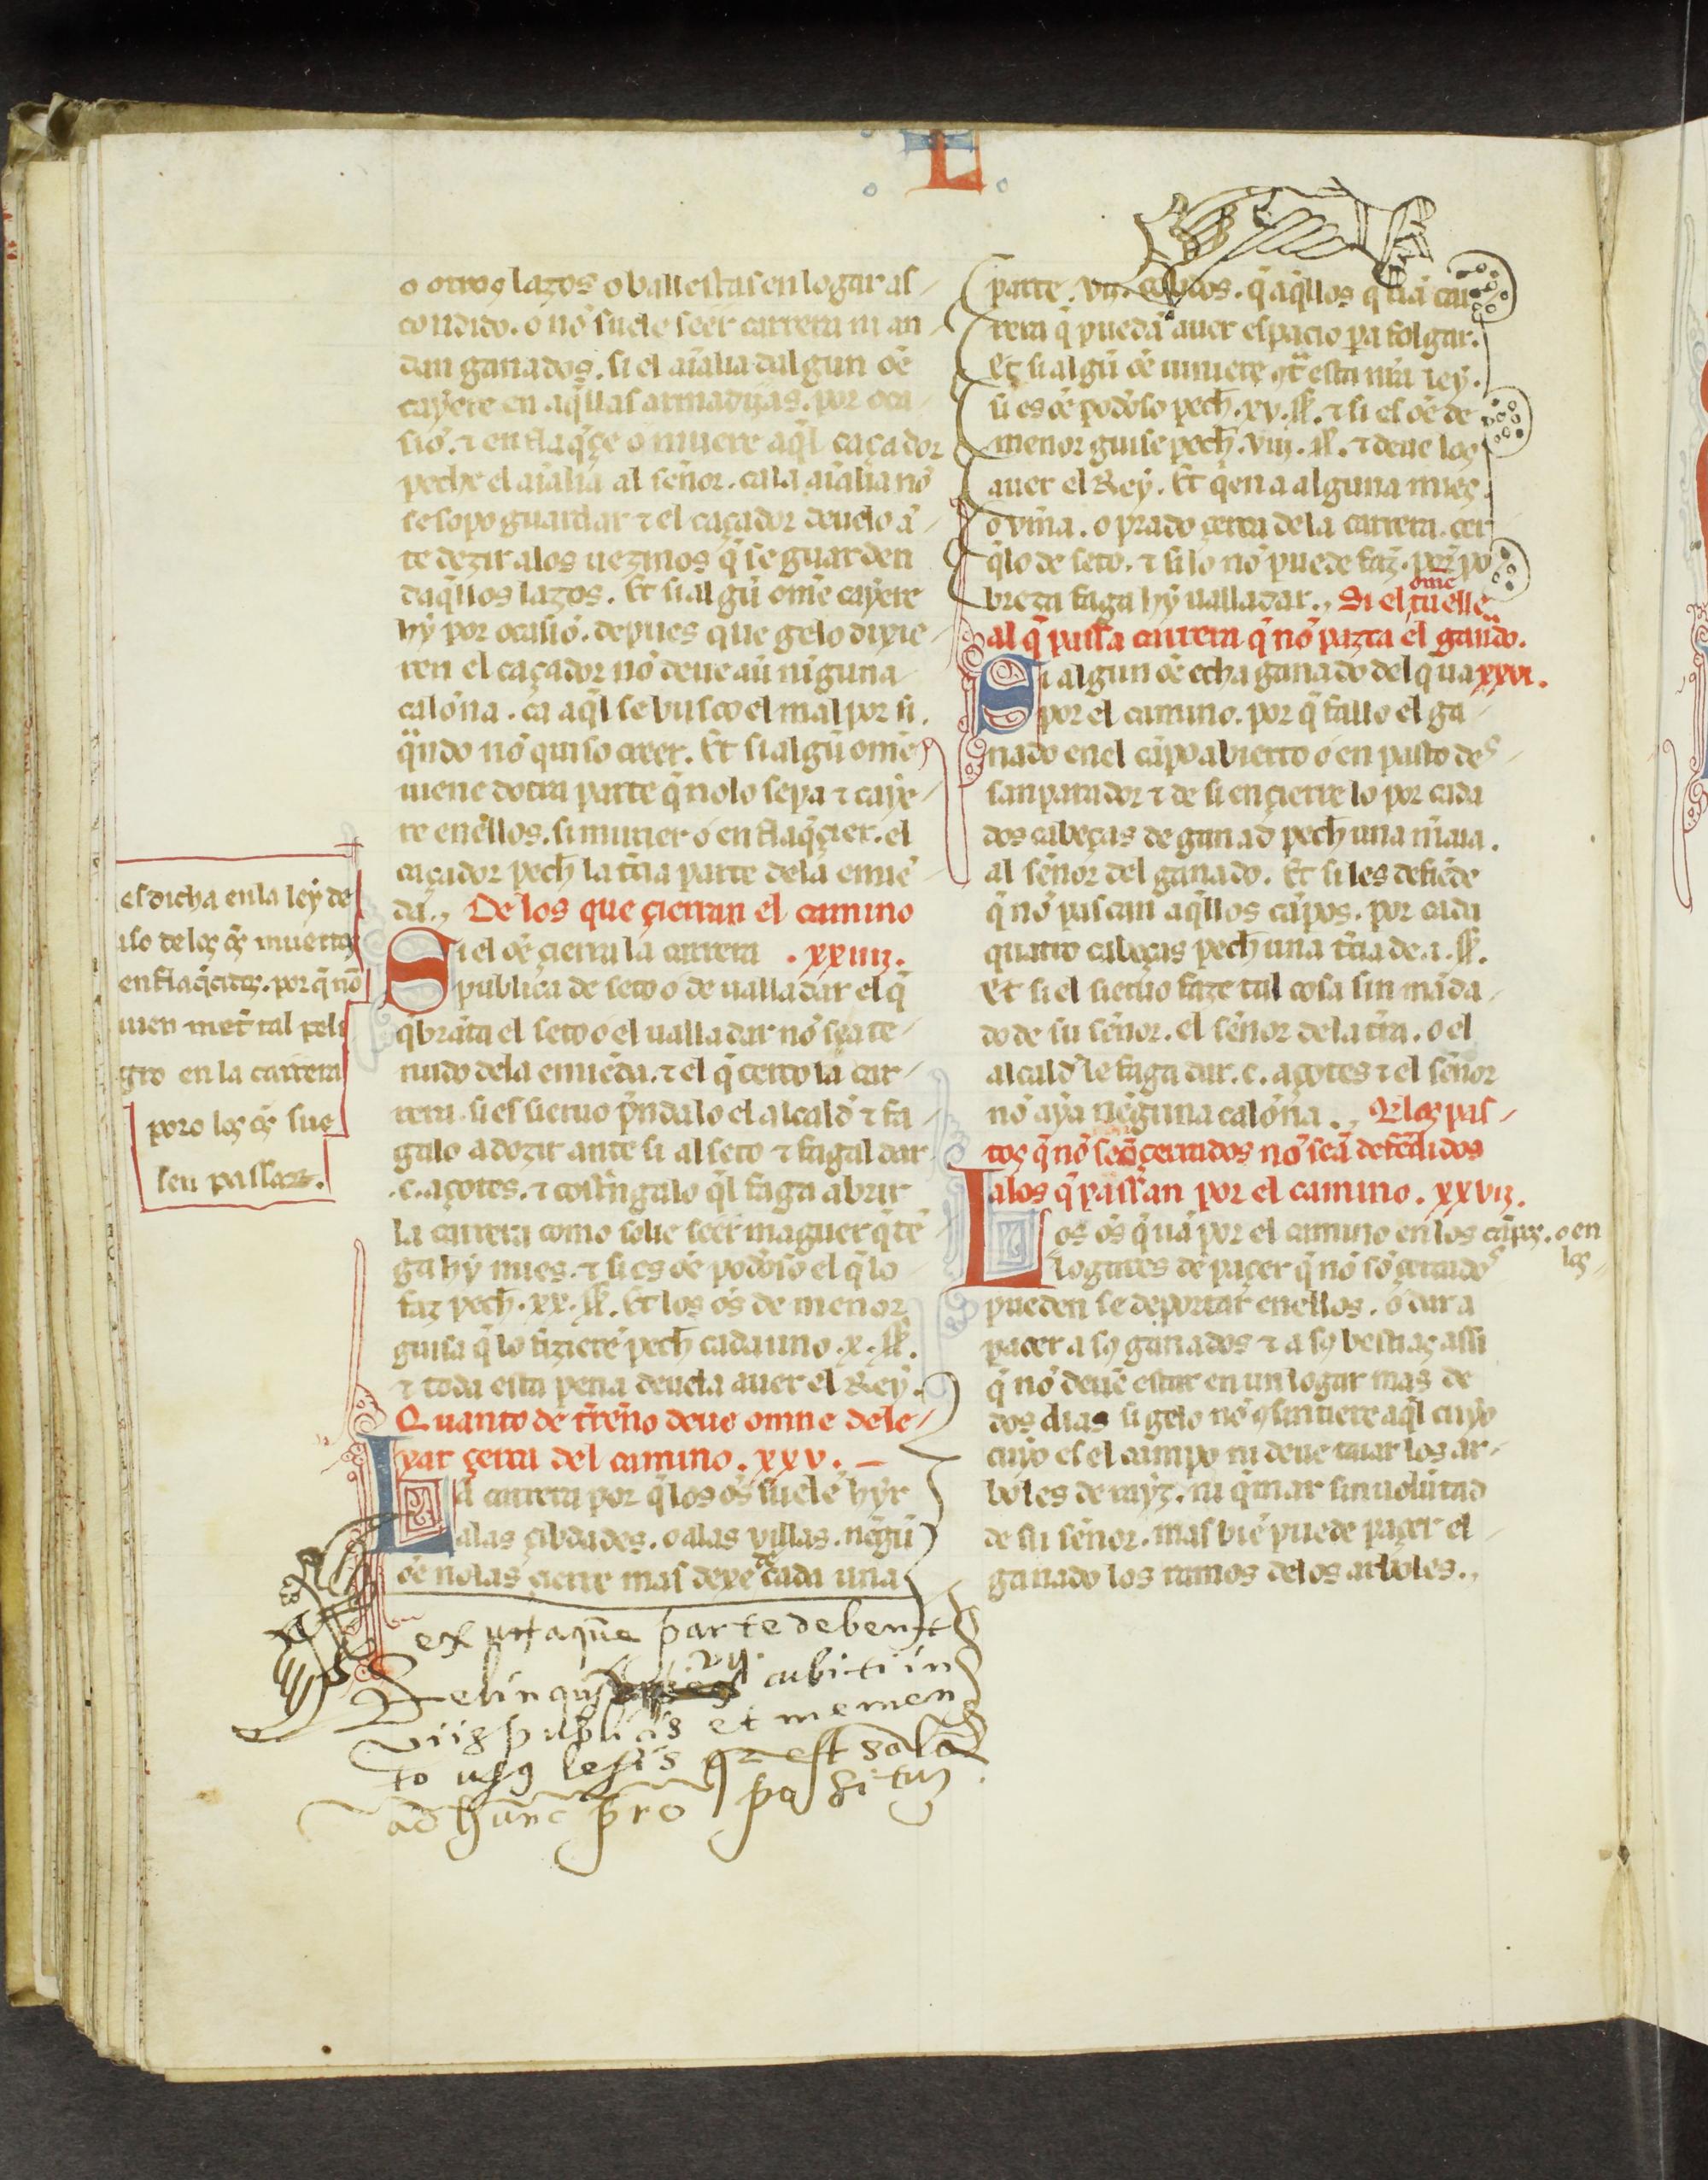 L
o otros lazos o ballestas en logar as
condido. o nõ suele seer carrera ni an
dan ganados. si el aĩalia dalgun oẽ
cayere en aq̃llas armadijas. por oca
siõ. ⁊ enflaq̃çe o muere aq̃l caçador
peche el aĩalia al señor. ca la aĩalia nõ
se sopo guardar ⁊ el caçador deuelo ã
te dezir alos uezinos q̃ se guarden
daq̃llos lazos. Et si algũ omẽ cayere
hy por ocasiõ. depues que gelo dixie
ren el caçador nõ deue auẽ niguna
calõna. ca aq̃l se busco el mal por si.
q̃ndo nõ quiso creer. Et si algũ omẽ
uiene dotra parte q̃ nolo sepa ⁊ caye
re enellos. si murier o enflaq̃çier. el
caçador pech̃ la tc̃ia parte dela emiẽ
da. De los que çierran el camino
Si el oẽ çierra la carrera .xxiiij.
publica de seto o de ualladar el q̃
q̃branta el seto o el ualladar nõ sea te
nudo dela emiẽda. ⁊ el q̃ cerro la car
rera. si es sieruo p̃ndalo el alcalđ ⁊ fa
galo adozir ante si al seto ⁊ fagal dar
.c. açotes. ⁊ costr̃ngalo q̃l faga abrir
la carrera como solie seer maguer q̃ tẽ
ga hy mies. ⁊ si es oẽ podoso el q̃ lo
faz pech̃. xx. ss̃. Et los oս̃ de menor
guisa q̃ lo fizierẽ pech̃ cada uno .x. ss̃.
⁊ toda esta pena deuela auer el Rey.
Quanto de tr̃eño deue omne dele
xar çerca del camino. xxv.
La carrera por q̃ los oս̃ suelẽ hyr
alas çibdades. o alas uillas. nĩgũ
oẽ nolas çierre mas dexe d̃ cada una
parte. vij. cobdos. q̃ aq̃llos q̃ uã car
rera q̃ puedã auer espacio pa folgar.
Et si algũ oẽ uiniere ꝯtͣ esta nr̃a ley.
si es oẽ podoso pech̃. xv. ss̃. ⁊ si es oẽ de
menor guisa pech̃. viij. ss̃. ⁊ deue los
auer el Rey. Et q̃en a alguna mies.
o vina. o prado çerca dela carrera. cer
q̃lo de seto. ⁊ si lo nõ puede faz̃. por po
breza faga hy ualladar. Si el ome tuelle
al q̃ passa carrera q̃ nõ pazca el ganãdo.
Si algun oẽ echa ganado del q̃ ua xxvi.
por el camino. por q̃ fallo el ga
nado enel cãpo abierto o en pasto des
sanparador ⁊ de si ençierre lo por cada
dos cabeças de ganađ pech̃ una m̃aia.
al señor del ganado. Et si les defiẽde
q̃ nõ pascan aq̃llos cãpos. por cada
quatro cabeças pech̃ una tc̃ia de .i. ss̃.
Et si el sieruo faze tal cosa sin mãda
do de su señor. el señor dela tr̃ra. o el
alcalđ le faga dar. c. açotes ⁊ el señor
nõ aya neguna calõna. Q̃ los pas
tos q̃ nõ seã çerrados nõ seã defendidos
alos q̃ passan por el camino. xxvij.
Los oս̃ q̃ uã por el camino en los cãpos. o en los
logares de paçer q̃ nõ sõ çerrados
pueden se deportar enellos. o dar a
paçer a sꝯ ganados ⁊ a sꝯ bestias assi
q̃ nõ deuẽ estar en un logar mas de
dos dias si gelo nõ ꝯsintiere aq̃l cuyo
cuyo es el campo ni deue taiar los ar
boles de rayz. ni q̃mar sin uolũtad
de su señor. mas biẽ puede paçer el
ganado los ramos delos arboles.
es dicha en la ley de
uso de los oս̃ muertos
enflaq̃cidos. por q̃ nõ
uien meter tal peli
gro en la carrera
poro los oս̃ sue
len passar.
ex utraque parte debent
Relinqui vij. cubiti in
viis publicis et memen
to usq lesis qz est sola
ad hunc pro positum